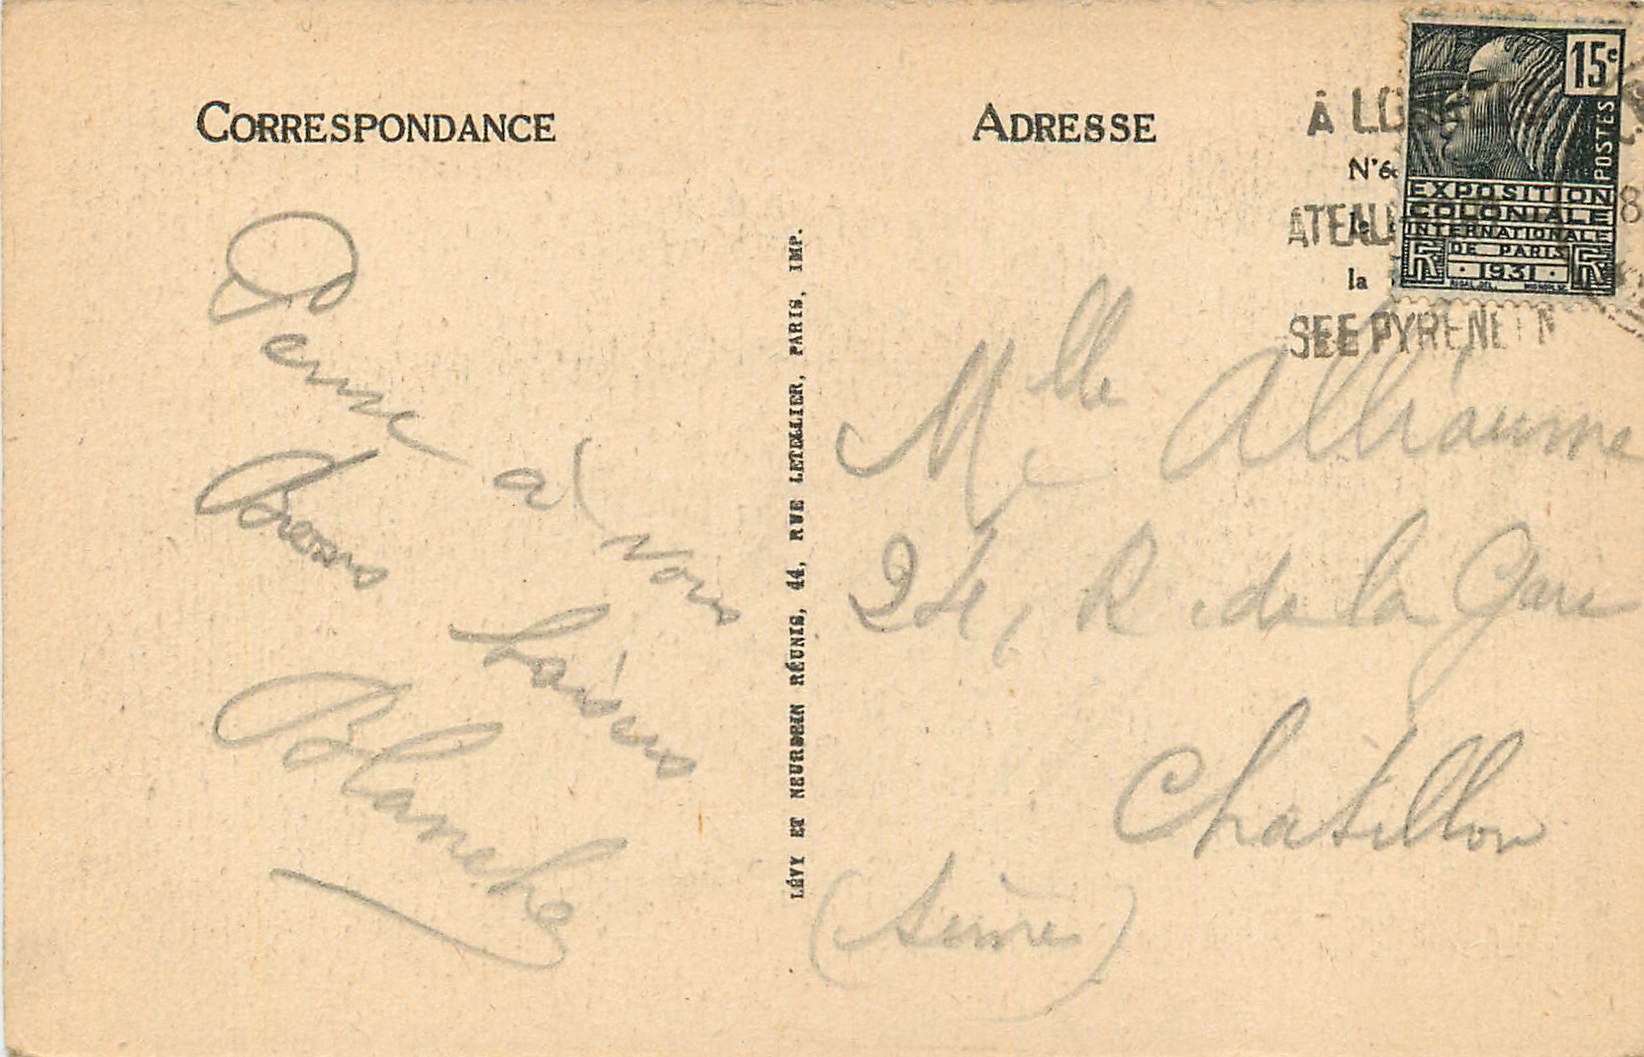 CORRESPONDANCE
Pense à vous
Bons baisers
Blanche
LÉVY ET NEURDEIN RÉUNIS, 44, RUE LETELLIER, PARIS, IMP.
ADRESSE
À LOU
N'6
ATEAU
la
SEE PYRENEEN
15c
POSTES
EXPOSITION
COLONIALE
INTERNATIONALE
DE PARIS
· 1931 ·
RF RF
8
Melle Alliaume
24, R. de la Gare
Chatillon
(Seine)